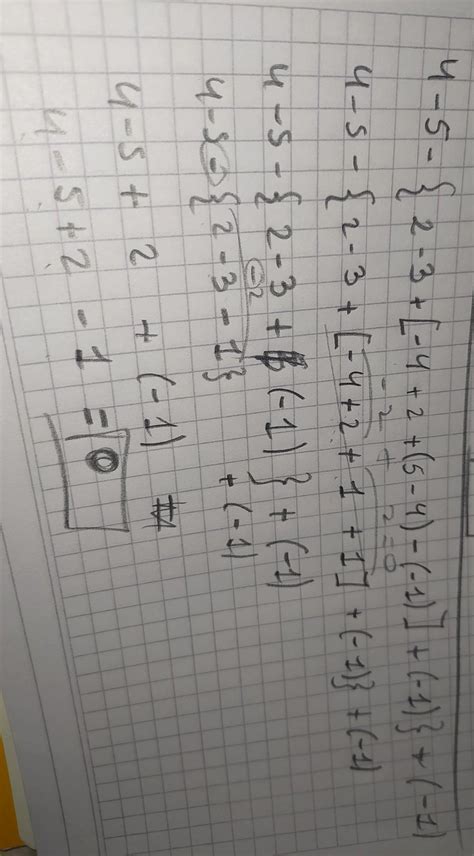 4-5-{2-3+[-4+2+(5-4)-(-1)]+(-1)}+(-1)
-2 + 2=0
4-5-{2-3+[-4+2+1+1]+(-1)}+(-1)
4-5-{2-3+(-1)}+(-1)
-2
4-5-{2-3-1}+(-1)
4-5+2+(-1)
4-5+2-1=0